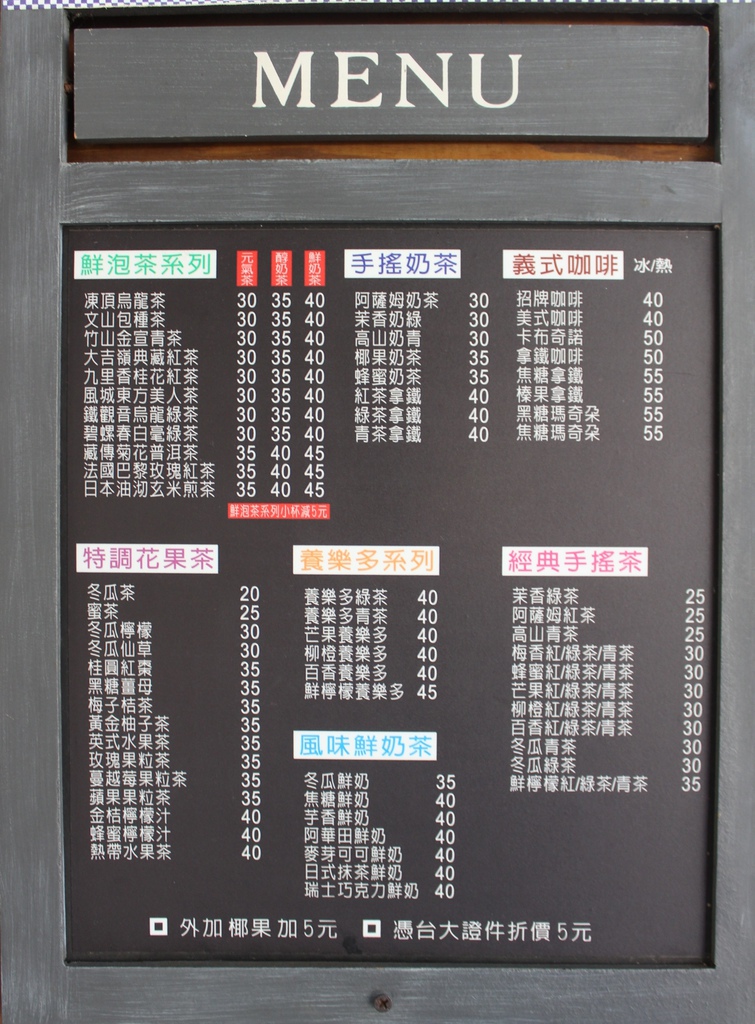 MENU
鮮泡茶系列 元氣茶 醇奶茶 鮮奶茶
凍頂烏龍茶 30 35 40
文山包種茶 30 35 40
竹山金宣青茶 30 35 40
大吉嶺典藏紅茶 30 35 40
九里香桂花紅茶 30 35 40
風城東方美人茶 30 35 40
鐵觀音烏龍綠茶 30 35 40
碧螺春白毫綠茶 30 35 40
藏傳菊花普洱茶 35 40 45
法國巴黎玫瑰紅茶 35 40 45
日本油沏玄米煎茶 35 40 45
鮮泡茶系列小杯減5元
手搖奶茶
阿薩姆奶茶 30
茉香奶綠 30
高山奶青 30
椰果奶茶 35
蜂蜜奶茶 35
紅茶拿鐵 40
綠茶拿鐵 40
青茶拿鐵 40
義式咖啡 冰/熱
招牌咖啡 40
美式咖啡 40
卡布奇諾 50
拿鐵咖啡 50
焦糖拿鐵 55
榛果拿鐵 55
黑糖瑪奇朵 55
焦糖瑪奇朵 55
特調花果茶
冬瓜茶 20
蜜茶 25
冬瓜檸檬 30
冬瓜仙草 30
桂圓紅棗 35
黑糖薑母 35
梅子桔茶 35
黃金柚子茶 35
英式水果茶 35
玫瑰果粒茶 35
蔓越莓果粒茶 35
蘋果果粒茶 35
金桔檸檬汁 40
蜂蜜檸檬汁 40
熱帶水果茶 40
養樂多系列
養樂多綠茶 40
養樂多青茶 40
芒果養樂多 40
柳橙養樂多 40
百香養樂多 40
鮮檸檬養樂多 45
風味鮮奶茶
冬瓜鮮奶 35
焦糖鮮奶 40
芋香鮮奶 40
阿華田鮮奶 40
麥芽可可鮮奶 40
日式抹茶鮮奶 40
瑞士巧克力鮮奶 40
經典手搖茶
茉香綠茶 25
阿薩姆紅茶 25
高山青茶 25
梅香紅/綠茶/青茶 30
蜂蜜紅/綠茶/青茶 30
芒果紅/綠茶/青茶 30
柳橙紅/綠茶/青茶 30
百香紅/綠茶/青茶 30
冬瓜青茶 30
冬瓜綠茶 30
鮮檸檬紅/綠茶/青茶 35
外加椰果加5元 憑台大證件折價5元